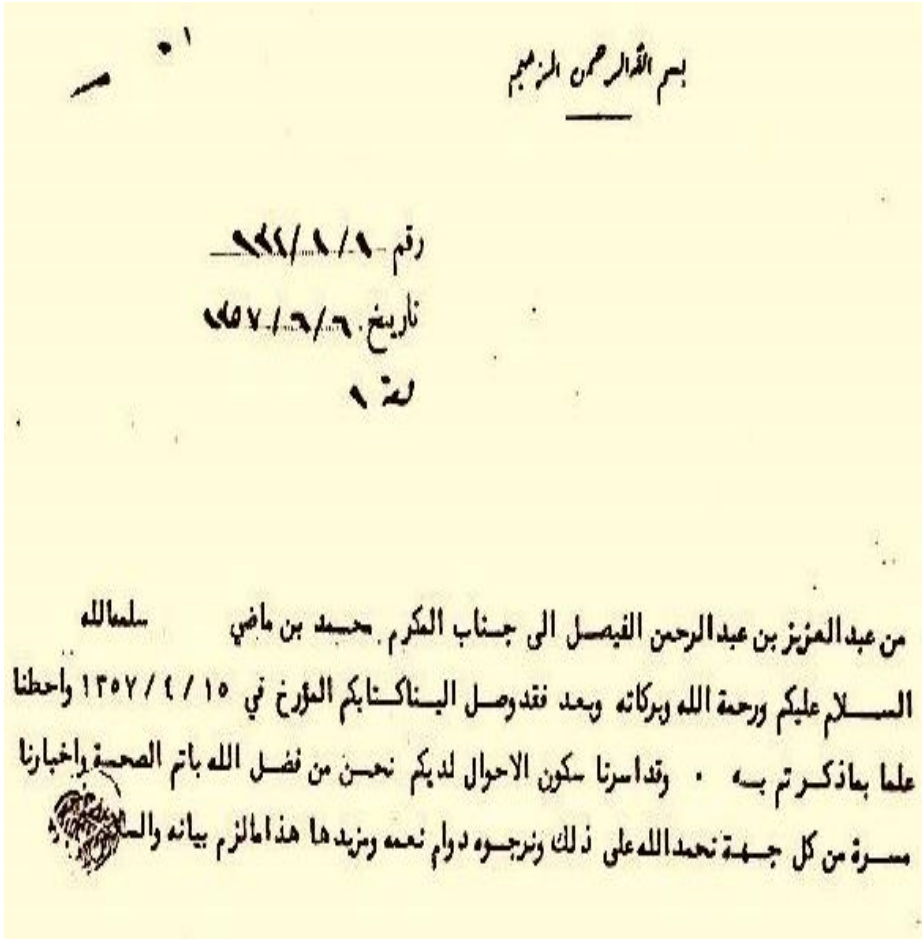 بسم الله الرحمن الرحيم
رقم
تاريخ ٦/٦/١٣٥٧
من عبدالعزيز بن عبدالرحمن الفيصل الى جناب المكرم محمد بن ماضي سلمه الله
السلام عليكم ورحمة الله وبركاته وبعد فقد وصل الينا كتابكم المؤرخ في ١٥ / ٤ / ١٣٥٧ واحطنا
علما بما ذكرتم به ٠ وقد اسرنا سكون الاحوال لديكم نحن من فضل الله باتم الصحة واخبارنا
مسرة من كل جهة نحمد الله على ذلك ونرجوه دوام نعمه ومزيدها هذا مالزم بيانه